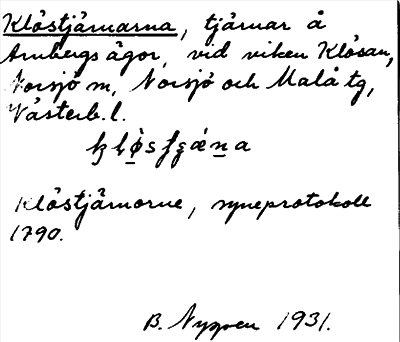 Klöstjärnarna, tjärnar å
Arnbergs ägor, vid viken Klösan,
Norsjö m, Norsjö och Malå tg,
Västerb. l.
Klöstjärnorne, syneprotokoll
1790.
B. Nyssen 1931.